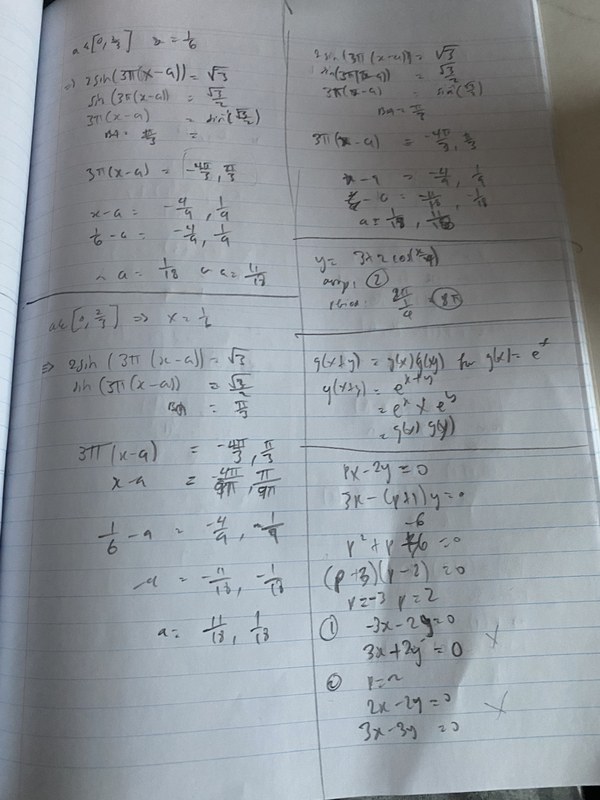 a ∈ [0, 2/3] x = 1/6
⇒ 2sin(3π(x-a)) = √3
sin(3π(x-a)) = √3/2
3π(x-a) = sin⁻¹(√3/2)
BA = π/3
3π(x-a) = -4π/3, π/3
x-a = -4/9, 1/9
1/6 - a = -4/9, 1/9
a = 1/18 a = 11/18
a ∈ [0, 2/3] ⇒ x = 1/6
⇒ 2sin(3π(x-a)) = √3
sin(3π(x-a)) = √3/2
BA = π/3
3π(x-a) = -4π/3, π/3
x-a = -4π/9π, π/9π
1/6 - a = -4/9, 1/9
-a = -11/18, -1/18
a = 11/18, 1/18
2sin(3π(x-a)) = √3
sin(3π(x-a)) = √3/2
3π(x-a) = sin⁻¹(√3/2)
BA = π/3
3π(x-a) = -4π/3, π/3
x-a = -4/9, 1/9
-a = -11/18, -1/18
a = 1/18, 11/18
y = 3+2cos(x/4)
amp: 2
period: 2π/(1/4) = 8π
g(x+y) = g(x)g(y) for g(x) = eˣ
g(x+y) = eˣ⁺ʸ
= eˣ × eʸ
= g(x) g(y)
px - 2y = 0
3x - (p+1)y = 0
p² + p - 6 = 0
(p+3)(p-2) = 0
p = -3 p = 2
① -3x - 2y = 0
3x + 2y = 0
② p = 2
2x - 2y = 0
3x - 3y = 0